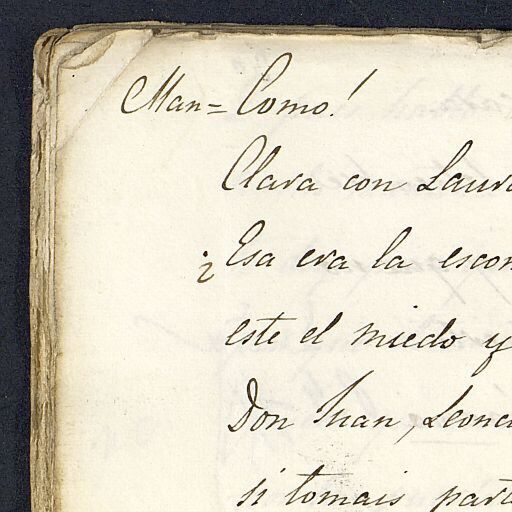 Man= Como!
Clara con Laura
¿Esa era la escon
este el miedo y
Don Juan, Leonc
si tomais part